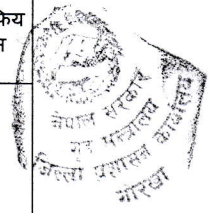 फिय
न
नेपाल सरकार
गृह मन्त्रालय
जिल्ला प्रशासन कार्यालय
गोरखा